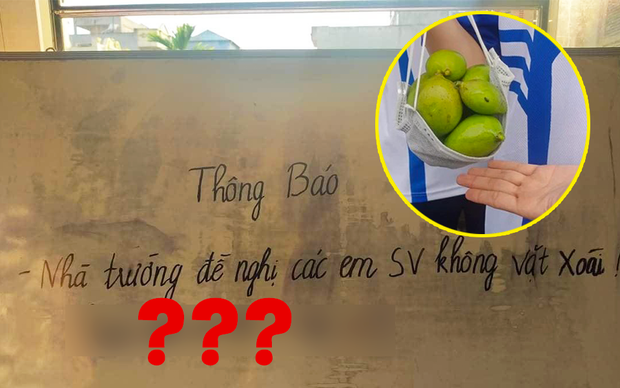 Thông Báo
- Nhà trường đề nghị các em SV không vặt xoài !
???